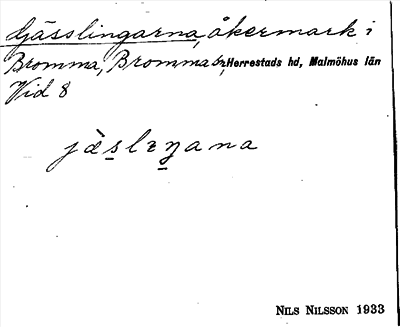 Gässlingarna, åkermark i
Bromma, Bromma sn, Herrestads hd, Malmöhus län
Vid 8
jä̀s̱lɪŋana
NILS NILSSON 1933